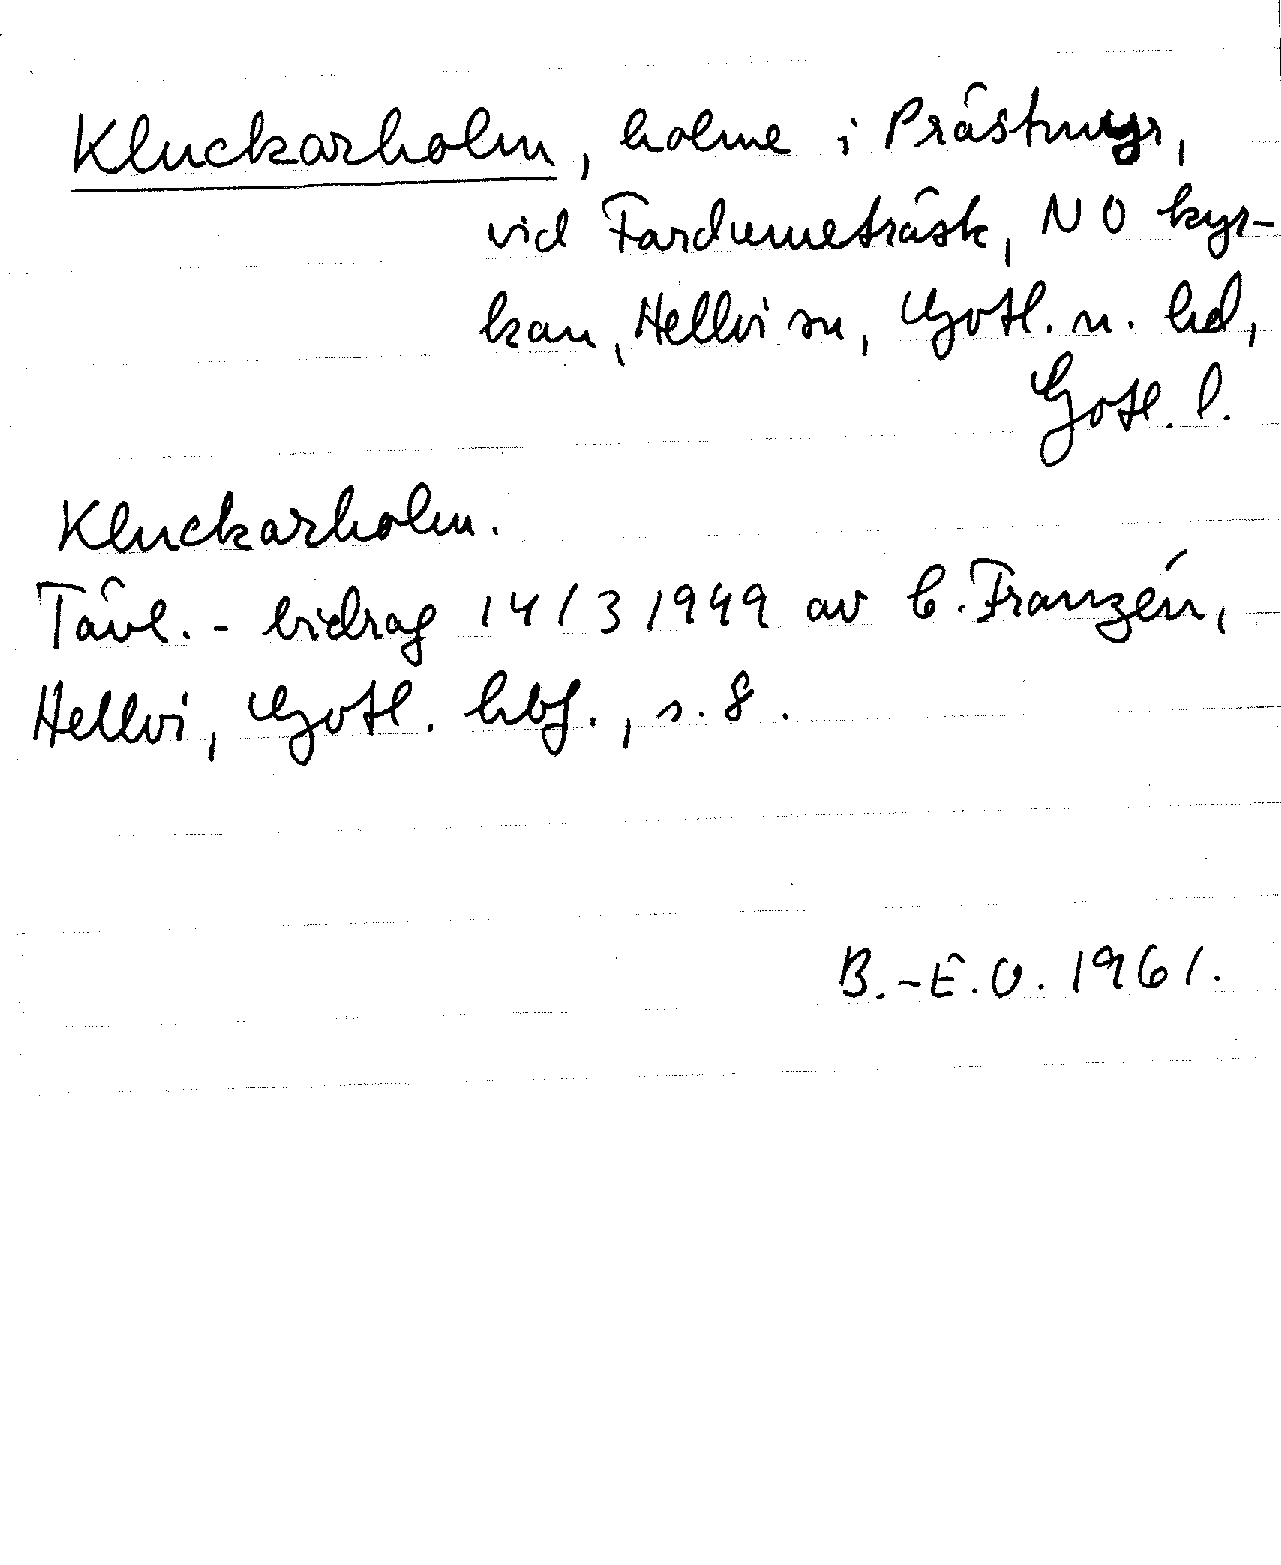 Kluckarholm, holme i Prästmyr,
vid Fardumeträsk, NO kyr-
kan, Hellvi sn, Gotl. n. hd,
Gotl. l.
Kluckarholm.
Tävl.-bidrag 14/3 1949 av C. Franzén,
Hellvi, Gotl. hbf., s. 8.
B.-E.O. 1961.